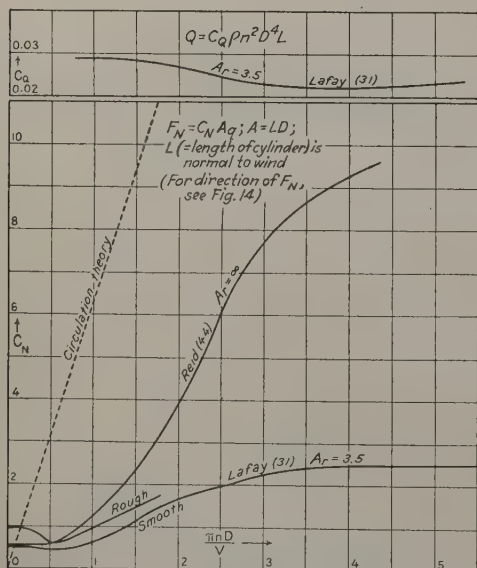 Q=C_Qρn²D⁴L
0.03
↑
C_Q
0.02
Ar=3.5
Lafay (31)
F_N=C_N Aq; A=LD;
L (=length of cylinder) is
normal to wind
(For direction of F_N,
see Fig. 14)
10
8
6
↑
C_N
4
2
Circulation theory
Reid (44)
Ar=∞
Lafay (31) Ar=3.5
Rough
Smooth
0
1
2
πnD/V →
3
4
5